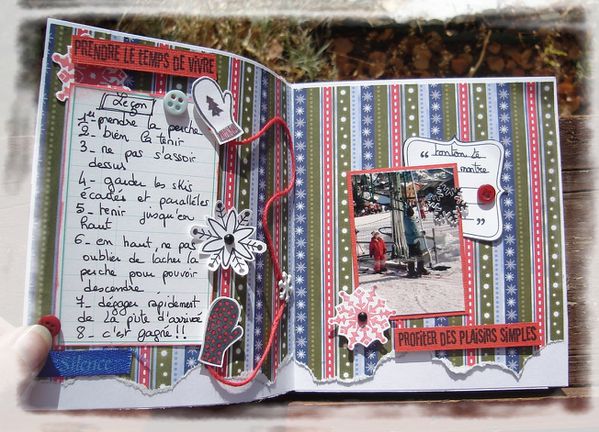 PRENDRE LE TEMPS DE VIVRE
Leçon
1- prendre la perche
2- bien la tenir
3- ne pas s'assoir
dessus
4- garder les skis
écartés et parallèles
5- tenir jusqu'en
haut
6- en haut, ne pas
oublier de lacher la
perche pour pouvoir
descendre.
7- dégager rapidement
de la piste d'arrivée
8- c'est gagné !!
Silence
"tonton le
maître
"
PROFITER DES PLAISIRS SIMPLES